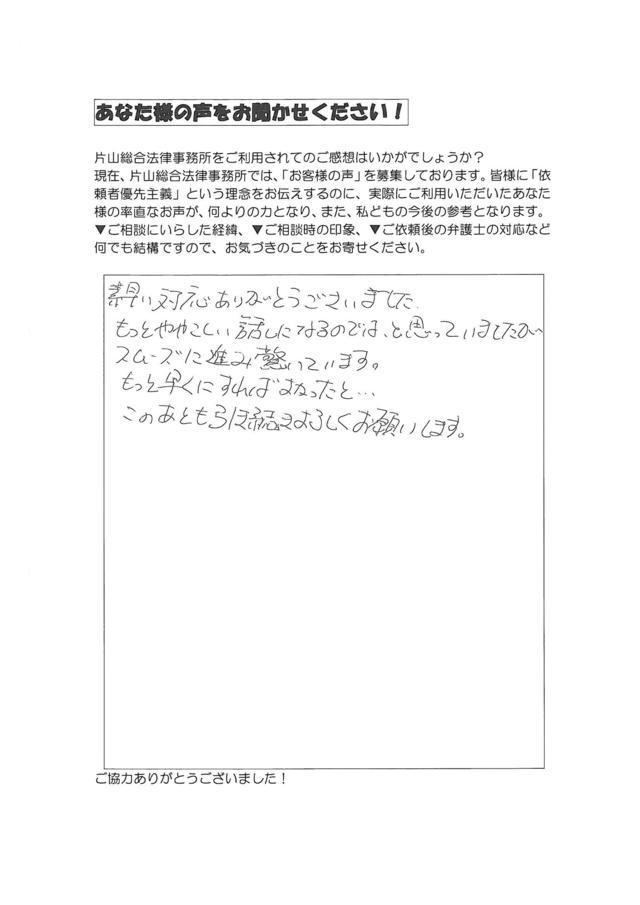 あなた様の声をお聞かせください！
片山総合法律事務所をご利用されてのご感想はいかがでしょうか？
現在、片山総合法律事務所では、「お客様の声」を募集しております。皆様に「依
頼者優先主義」という理念をお伝えするのに、実際にご利用いただいたあなた
様の率直なお声が、何よりの力となり、また、私どもの今後の参考となります。
▼ご相談にいらした経緯、▼ご相談時の印象、▼ご依頼後の弁護士の対応など
何でも結構ですので、お気づきのことをお寄せください。
素早い対応ありがとうございました
もっとややこしい話しになるのでは、と思っていましたが
スムーズに進み驚いています。
もっと早くにすればよかったと…
このあとも引き続きよろしくお願いします。
ご協力ありがとうございました！